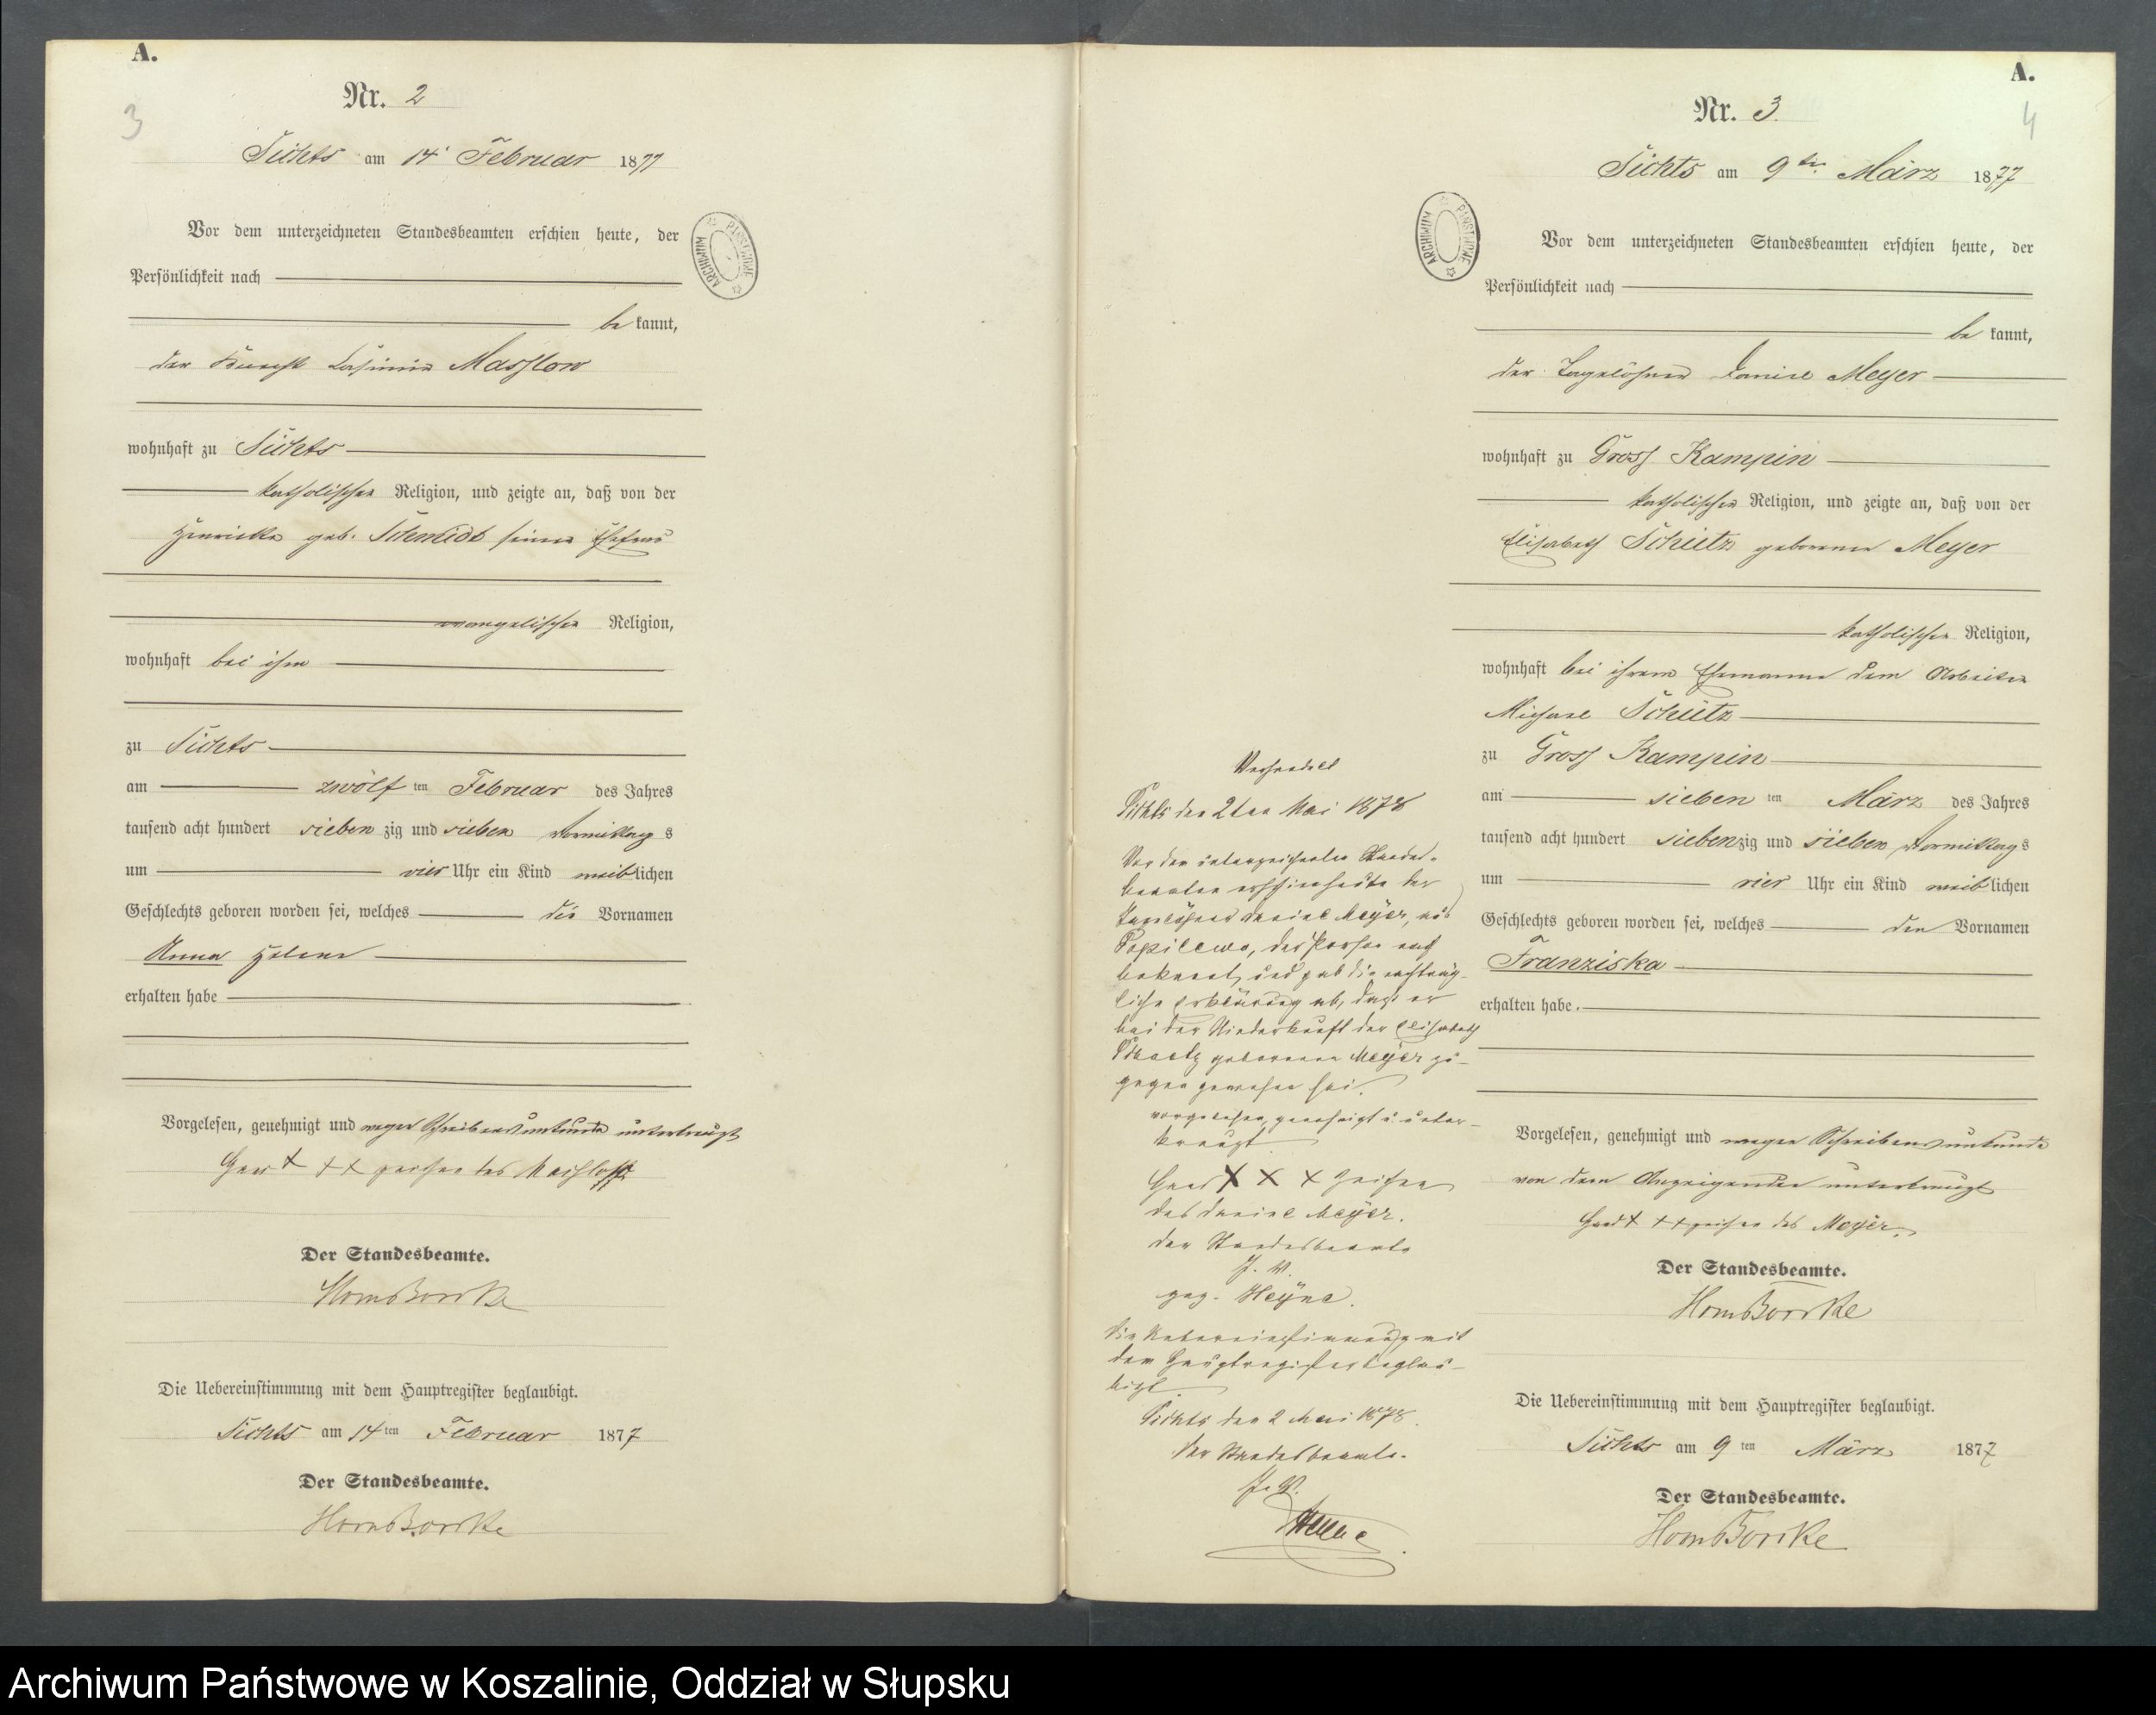 A.
3
Nr. 2
Sichts am 14 Februar 1877
Vor dem unterzeichneten Standesbeamten erschien heute, der
Persönlichkeit nach
be kannt,
der Knecht Casimir Masslow
wohnhaft zu Sichts
katholischer Religion, und zeigte an, daß von der
Henriette geb. Schmidt seiner Ehefrau
evangelischer Religion,
wohnhaft bei ihm
zu Sichts
am zwölf ten Februar des Jahres
tausend acht hundert sieben zig und sieben Vormittag s
um vier Uhr ein Kind weiblichen
Geschlechts geboren worden sei, welches die Vornamen
Anna Helene
erhalten habe
Vorgelesen, genehmigt und wegen Schreibensunkunde unterkreuzt
Hand + + + zeichen des Masslow
Der Standesbeamte.
Die Uebereinstimmung mit dem Hauptregister beglaubigt.
Sichts am 14ten Februar 1877
Der Standesbeamte.
ARCHIWUM PAŃSTWOWE
A.
4
Nr. 3.
Sichts am 9ten März 1877
Vor dem unterzeichneten Standesbeamten erschien heute, der
Persönlichkeit nach
be kannt,
der Tagelöhner Daniel Meyer
wohnhaft zu Gross Kampin
katholischer Religion, und zeigte an, daß von der
Elisabeth Schütz geborenen Meyer
katholischer Religion,
wohnhaft bei ihrem Ehemanne dem Arbeiter
Michael Schütz
zu Gross Kampin
am sieben ten März des Jahres
tausend acht hundert siebenzig und sieben Vormittags
um vier Uhr ein Kind weiblichen
Geschlechts geboren worden sei, welches den Vornamen
Franziska
erhalten habe.
Vorgelesen, genehmigt und wegen Schreibensunkunde
von dem Anzeigenden unterkreuzt
Hand + + + zeichen des Meyer.
Der Standesbeamte.
Die Uebereinstimmung mit dem Hauptregister beglaubigt.
Sichts am 9 ten März 1877
Der Standesbeamte.
ARCHIWUM PAŃSTWOWE
Verhandelt
Sichts den 2ten Mai 1878
Vor dem unterzeichneten Standes-
beamten erschien heute der
Tagelöhner Daniel Meyer, aus
der Person nach
bekannt, und gab die nachträg-
liche Erklärung ab, dass er
bei der Niederkunft der Elisabeth
Schuetz geborenen Meyer zu-
gegen gewesen sei.
vorgelesen, genehmigt u. unter-
kreuzt
Hand X X X Zeichen
des Daniel Meyer.
der Standesbeamte
J. V.
gez. Heyne.
Die Uebereinstimmung mit
dem Hauptregister beglau-
bigt
Sichts den 2 Mai 1878.
Der Standesbeamte.
J. V.
Heyne
Archiwum Państwowe w Koszalinie, Oddział w Słupsku